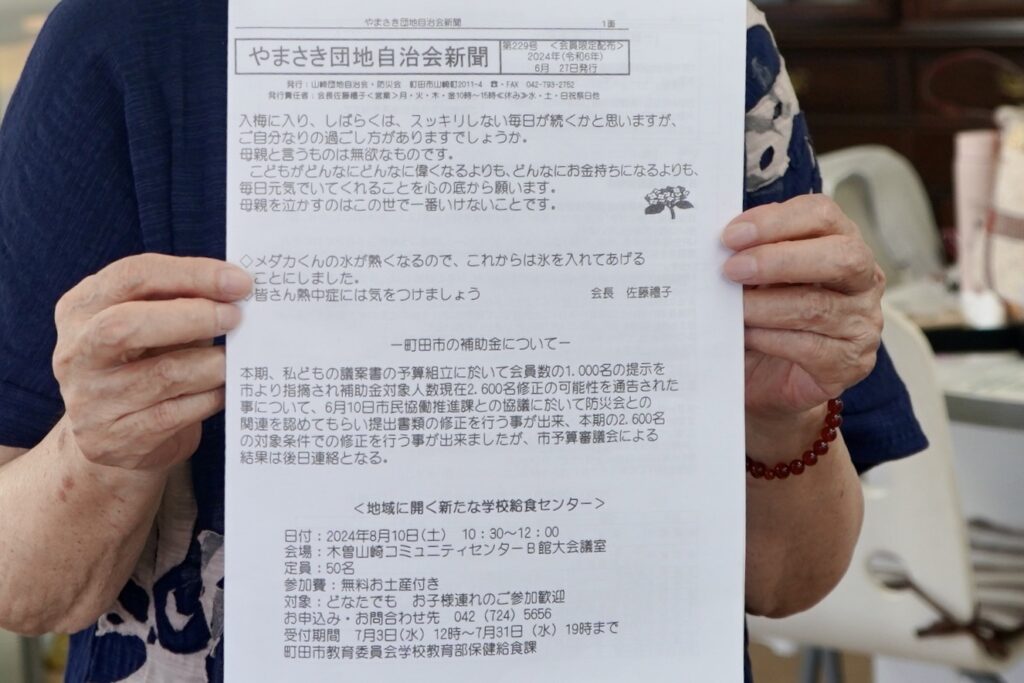 やまさき団地自治会新聞 1面
やまさき団地自治会新聞
第229号 <会員限定配布>
2024年(令和6年)
6月 27日発行
発行:山崎団地自治会・防災会 町田市山崎町2011-4 ☎・FAX 042-793-2752
発行責任者:会長佐藤禮子<営業>月・火・木・金10時~15時≪休み≫水・土・日祝祭日他
入梅に入り、しばらくは、スッキリしない毎日が続くかと思いますが、
ご自分なりの過ごし方がありますでしょうか。
母親と言うものは無欲なものです。
こどもがどんなにどんなに偉くなるよりも、どんなにお金持ちになるよりも、
毎日元気でいてくれることを心の底から願います。
母親を泣かすのはこの世で一番いけないことです。
◇メダカくんの水が熱くなるので、これからは氷を入れてあげる
ことにしました。
◇皆さん熱中症には気をつけましょう 会長 佐藤禮子
－町田市の補助金について－
本期、私どもの議案書の予算組立に於いて会員数の1.000名の提示を
市より指摘され補助金対象人数現在2.600名修正の可能性を通告された
事について、6月10日市民協働推進課との協議に於いて防災会との
関連を認めてもらい提出書類の修正を行う事が出来、本期の2.600名
の対象条件での修正を行う事が出来ましたが、市予算審議会による
結果は後日連絡となる。
<地域に開く新たな学校給食センター>
日付:2024年8月10日(土) 10:30~12:00
会場:木曽山崎コミュニティセンターB館大会議室
定員:50名
参加費:無料お土産付き
対象:どなたでも お子様連れのご参加歓迎
お申込み・お問合わせ先 042(724)5656
受付期間 7月3日(水)12時~7月31日(水)19時まで
町田市教育委員会学校教育部保健給食課